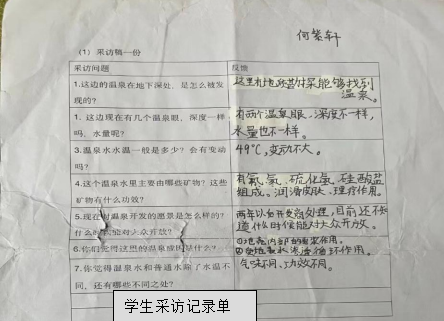 何紫轩
(1) 采访稿一份
采访问题 反馈
1.这边的温泉在地下深处，是怎么被发现的? 这里相地质勘探能够找到温泉。
1. 这边现在有几个温泉眼，深度一样吗，水量呢? 有两个温泉眼、深度不一样，水量也不一样。
3.温泉水水温一般是多少? 会有变动吗? 49℃，变动不大。
4.这个温泉水里主要由哪些矿物? 这些矿物有什么功效? 有氟、氡、硫化氢、硅酸盐组成。润滑皮肤、理疗作用。
5.现在对温泉开发的愿景是怎么样的? 什么时候能对大众开放? 两年以加开发商处理，目前还不知道什么时候能对大众开放。
6.你们觉得这里的温泉成因是什么? ①地壳内部的岩浆作用。
②受地表水渗透循环作用。
7.你觉得温泉水和普通水除了水温不同，还有哪些不同之处? 气味不同、功效不同。
学生采访记录单